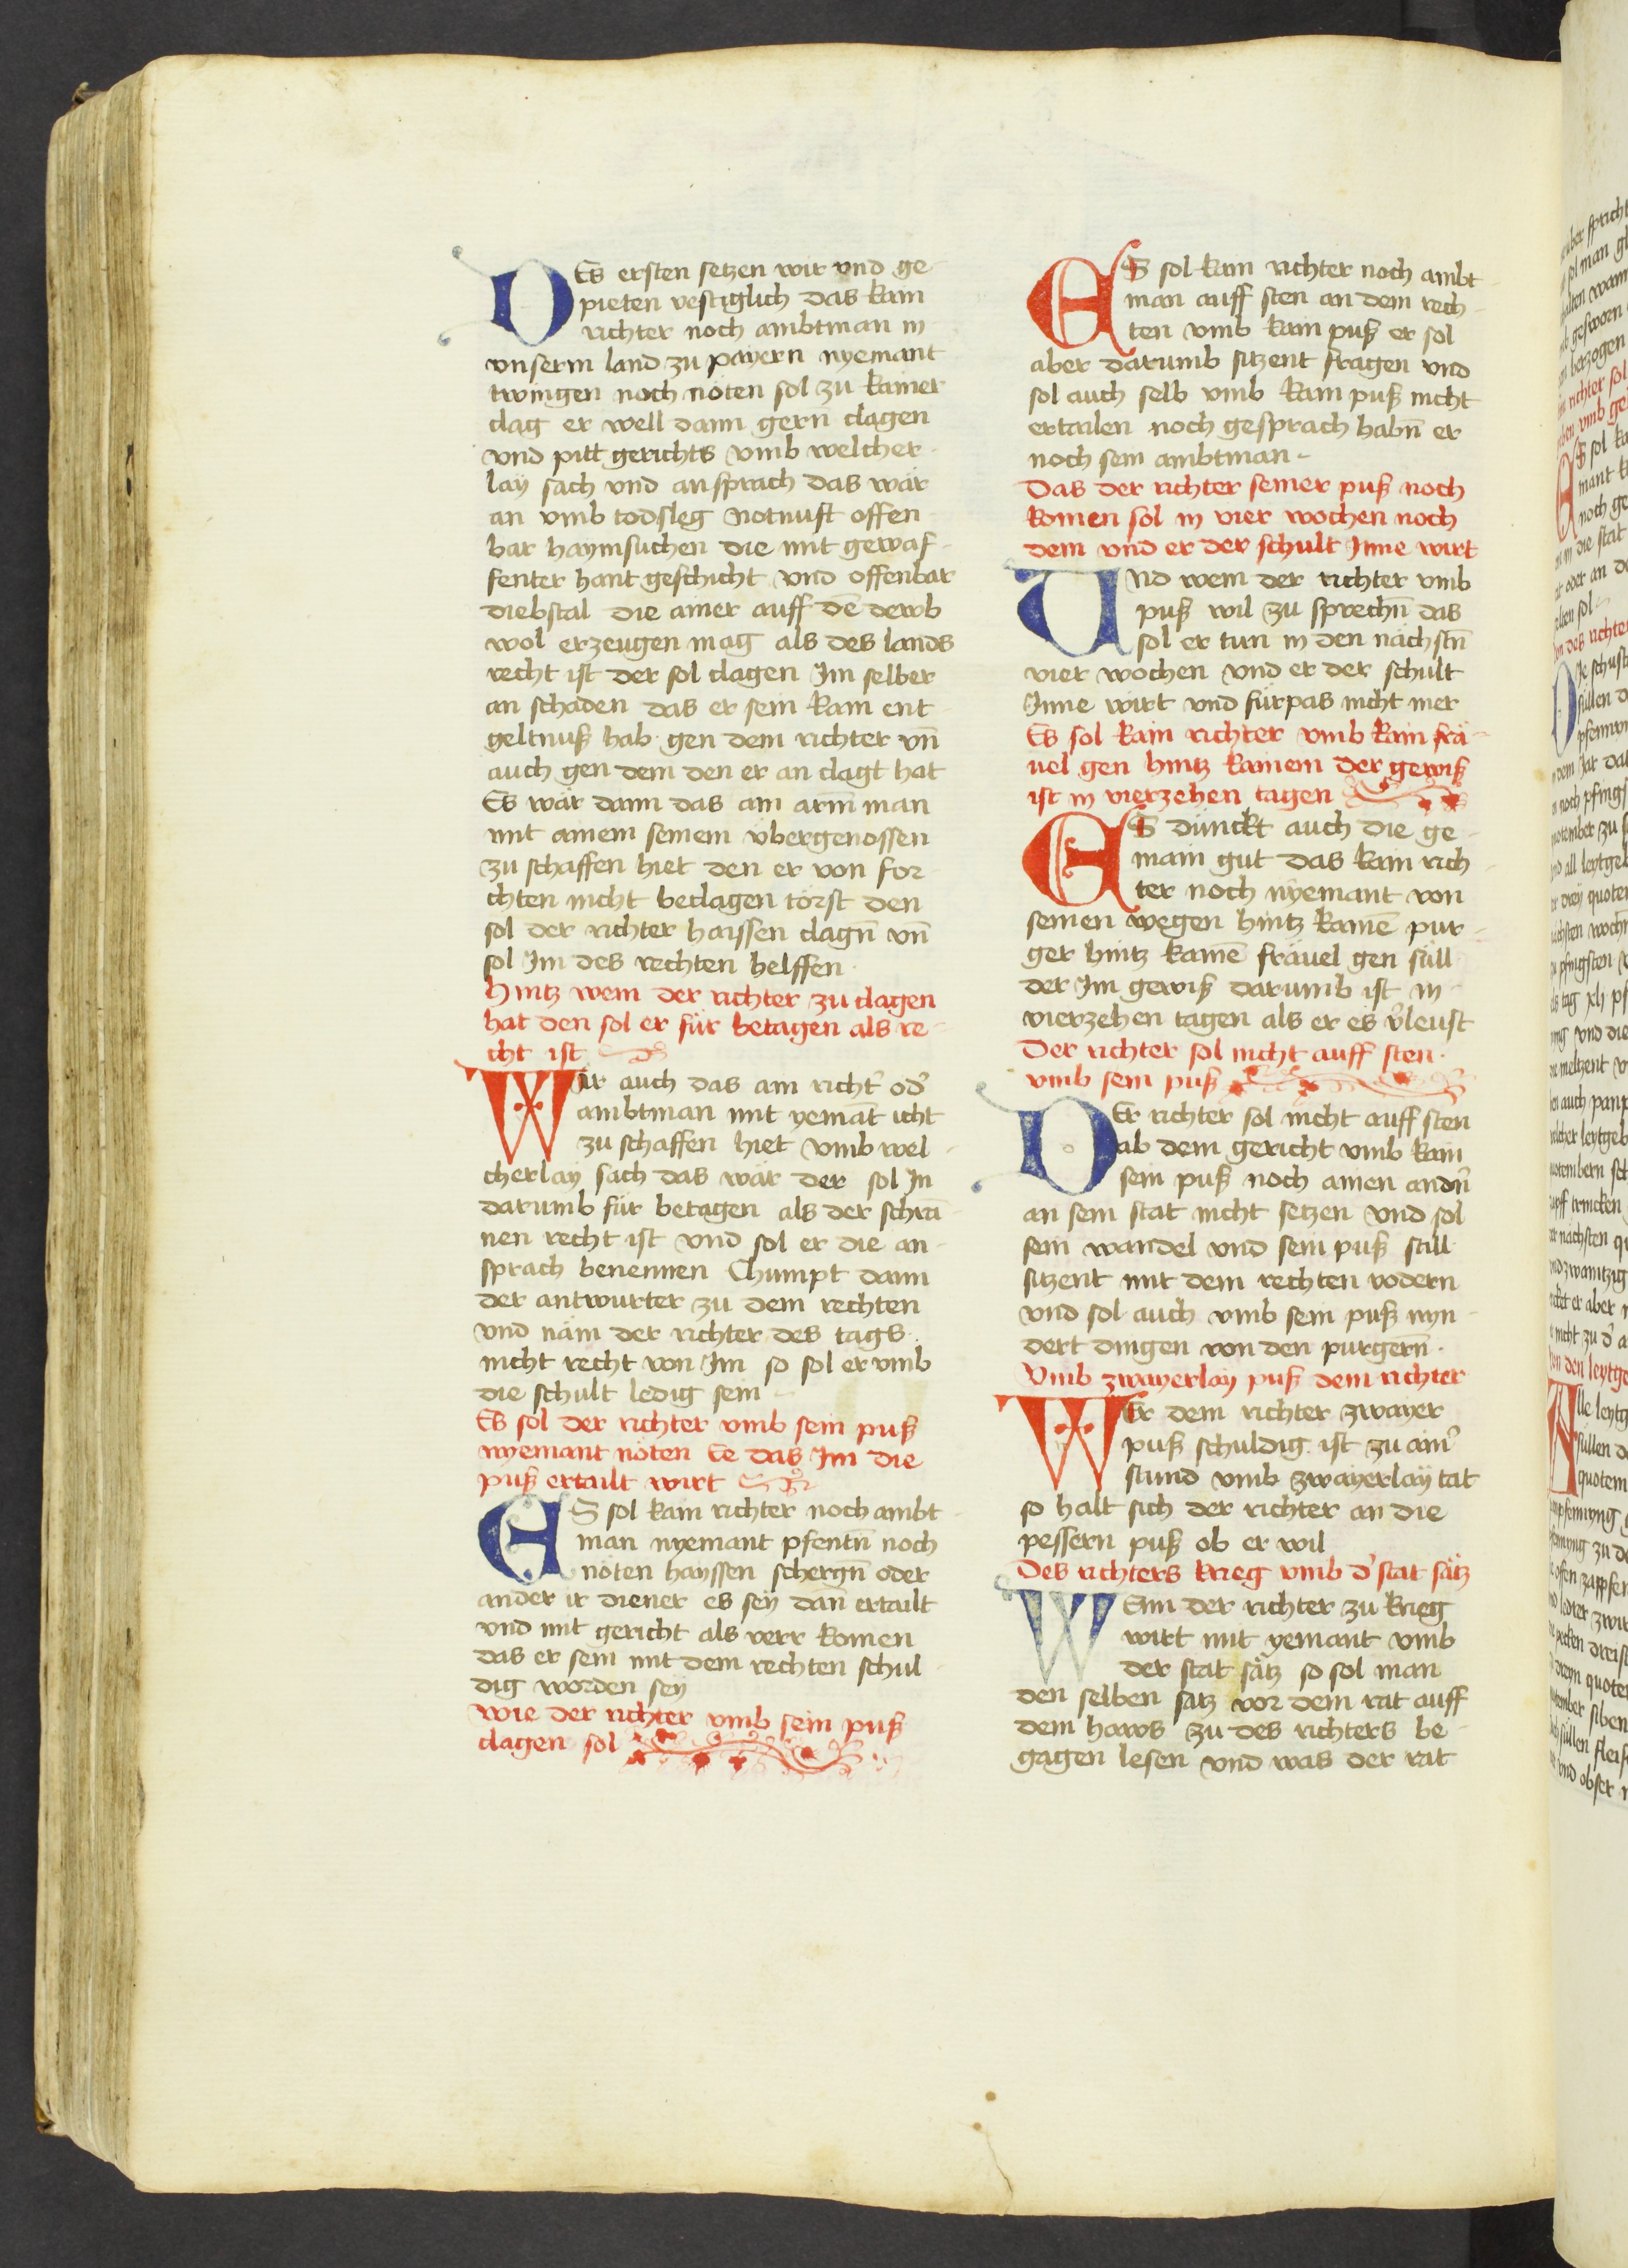 DEs ersten setzen wir vnd ge
pieten vestiglich das kain
richter noch ambtman in
vnserm land zu payern nyemant
twingen noch nöten sol zu kainer
clag er well dann gern clagen
vnd pitt gerichts vmb welcher
lay sach vnd ansprach das wär
an vmb todsleg notnuft offen
bar haymsuchen die mit gewaf
fenter hant geschicht vnd offenbar
diebstal die ainer auff dē dewb
wol erzeugen mag als des lands
recht ist der sol clagen Im selber
an schaden das er sein kain ent
geltnuß hab gen dem richter vn̄
auch gen dem den er an clagt hat
Es wär dann das ain arm̄ man
mit ainem seinem übergenossen
zu schaffen hiet den er von for
chten nicht beclagen törst den
sol der richter haissen clagn̄ vn̄
sol Im des rechten helffen
Hintz wem der richter zu clagen
hat den sol er für betagen als re
cht ist
Wär auch das ain richt' od'
ambtman mit yemāt icht
zu schaffen hiet vmb wel
cherlay sach das wär der sol In
darumb für betagen als der schrā
nen recht ist vnd sol er die an
sprach benennen Chumpt dann
der antwurter zu dem rechten
vnd näm der richter des tags
nicht recht von Im so sol er vmb
die schult ledig sein
Es sol der richter vmb sein puß
nyemant nöten Ee das Im die
puß ertailt wirt
ES sol kain richter noch ambt
man nyemant pfentn̄ noch
nöten hayssen schergn̄ oder
ander ir diener es sey dan̄ ertailt
vnd mit gericht als verr komen
das er sein mit dem rechten schul
dig worden sey
wie der richter vmb sein puß
clagen sol
ES sol kain richter noch ambt
man auff sten an dem rech
ten vmb kain puß er sol
aber darumb sitzent fragen vnd
sol auch selb vmb kain puß nicht
ertailen noch gesprach habn̄ er
noch sein ambtman
Das der richter seiner puß noch
komen sol in vier wochen noch
dem vnd er der schult Inne wirt
Vnd wem der richter vmb
puß wil zu sprechn̄ das
sol er tun in den nächstn̄
vier wochen vnd er der schult
Inne wirt vnd fürpas nicht mer
Es sol kain richter vmb kain frä
uel gen hintz kainem der gewiß
ist in vierzehen tagen
ES dünckt auch die ge
main gut das kain rich
ter noch nyemant von
seinen wegen hintz kainē pur
ger hintz kainē fräuel gen süll
der Im gewiß darumb ist in
vierzehen tagen als er es v'leust
Der richter sol nicht auff sten
vmb sein puß
DEr richter sol nicht auff sten
ab dem gericht vmb kain
sein puß noch ainen andn̄
an sein stat nicht setzen vnd sol
sein wandel vnd sein puß still
sitzent mit dem rechten vodern
vnd sol auch vmb sein puß nyn
dert dingen von den purgern̄
Vmb zwayerlay puß dem richter
WEr dem richter zwayer
puß schuldig ist zu ain'
stund vmb zwayerlay tat
so halt sich der richter an die
pessern puß ob er wil
Des richters krieg vmb d' stat sätz
WEnn der richter zu krieg
wirt mit yemant vmb
der stat sätz so sol man
den selben satz vor dem rat auff
dem haws zu des richters be
gagen lesen vnd was der rat